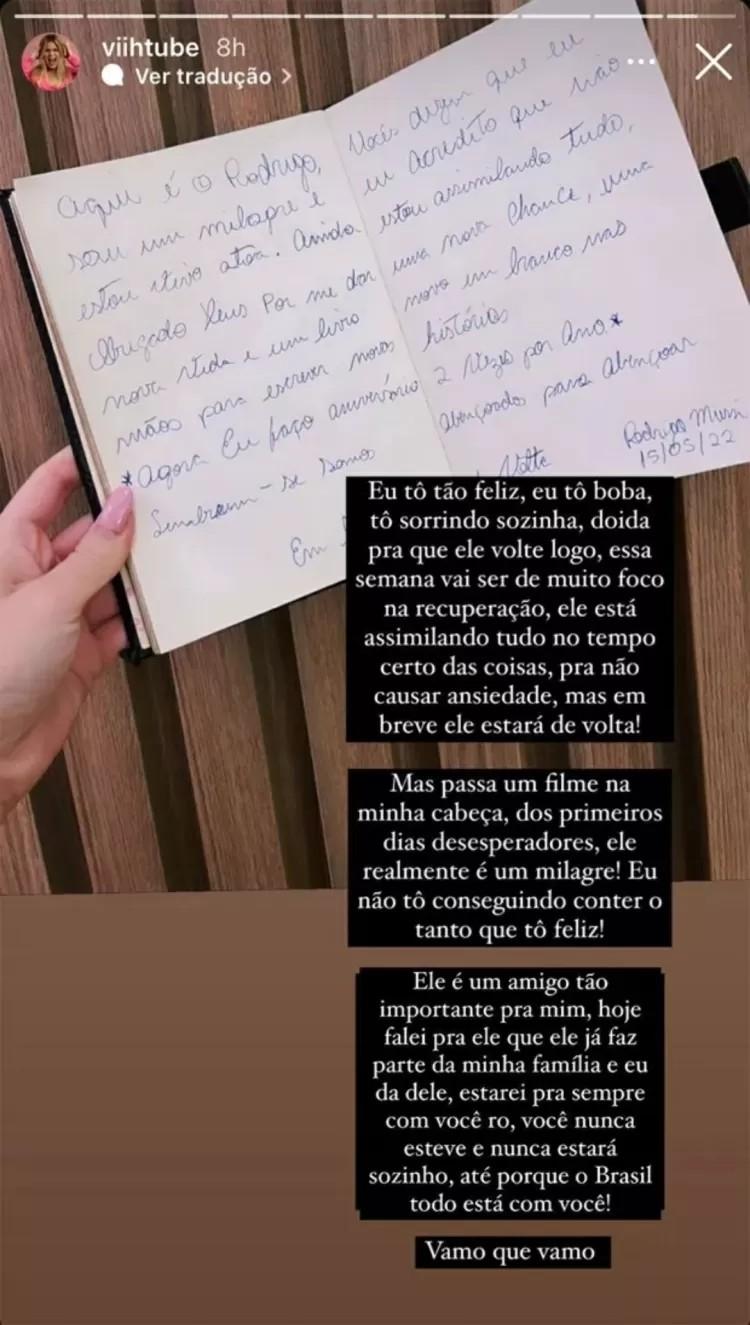 viihtube 8h
Ver tradução >
Aqui é o Rodrigo, Vocês dizem que eu
sou um milagre e eu acredito que não
estou vivo atoa. Ainda estou assimilando tudo,
Obrigado Deus Por me dar uma nova chance, uma
nova vida e um livro novo em branco nas
mãos para escrever novas histórias
*Agora Eu faço aniversário 2 Vezes por Ano*
Lembrem-se Somos abençoados para abençoar
Em Volto
Rodrigo Mussi
15/05/22
Eu tô tão feliz, eu tô boba,
tô sorrindo sozinha, doida
pra que ele volte logo, essa
semana vai ser de muito foco
na recuperação, ele está
assimilando tudo no tempo
certo das coisas, pra não
causar ansiedade, mas em
breve ele estará de volta!
Mas passa um filme na
minha cabeça, dos primeiros
dias desesperadores, ele
realmente é um milagre! Eu
não tô conseguindo conter o
tanto que tô feliz!
Ele é um amigo tão
importante pra mim, hoje
falei pra ele que ele já faz
parte da minha família e eu
da dele, estarei pra sempre
com você ro, você nunca
esteve e nunca estará
sozinho, até porque o Brasil
todo está com você!
Vamo que vamo